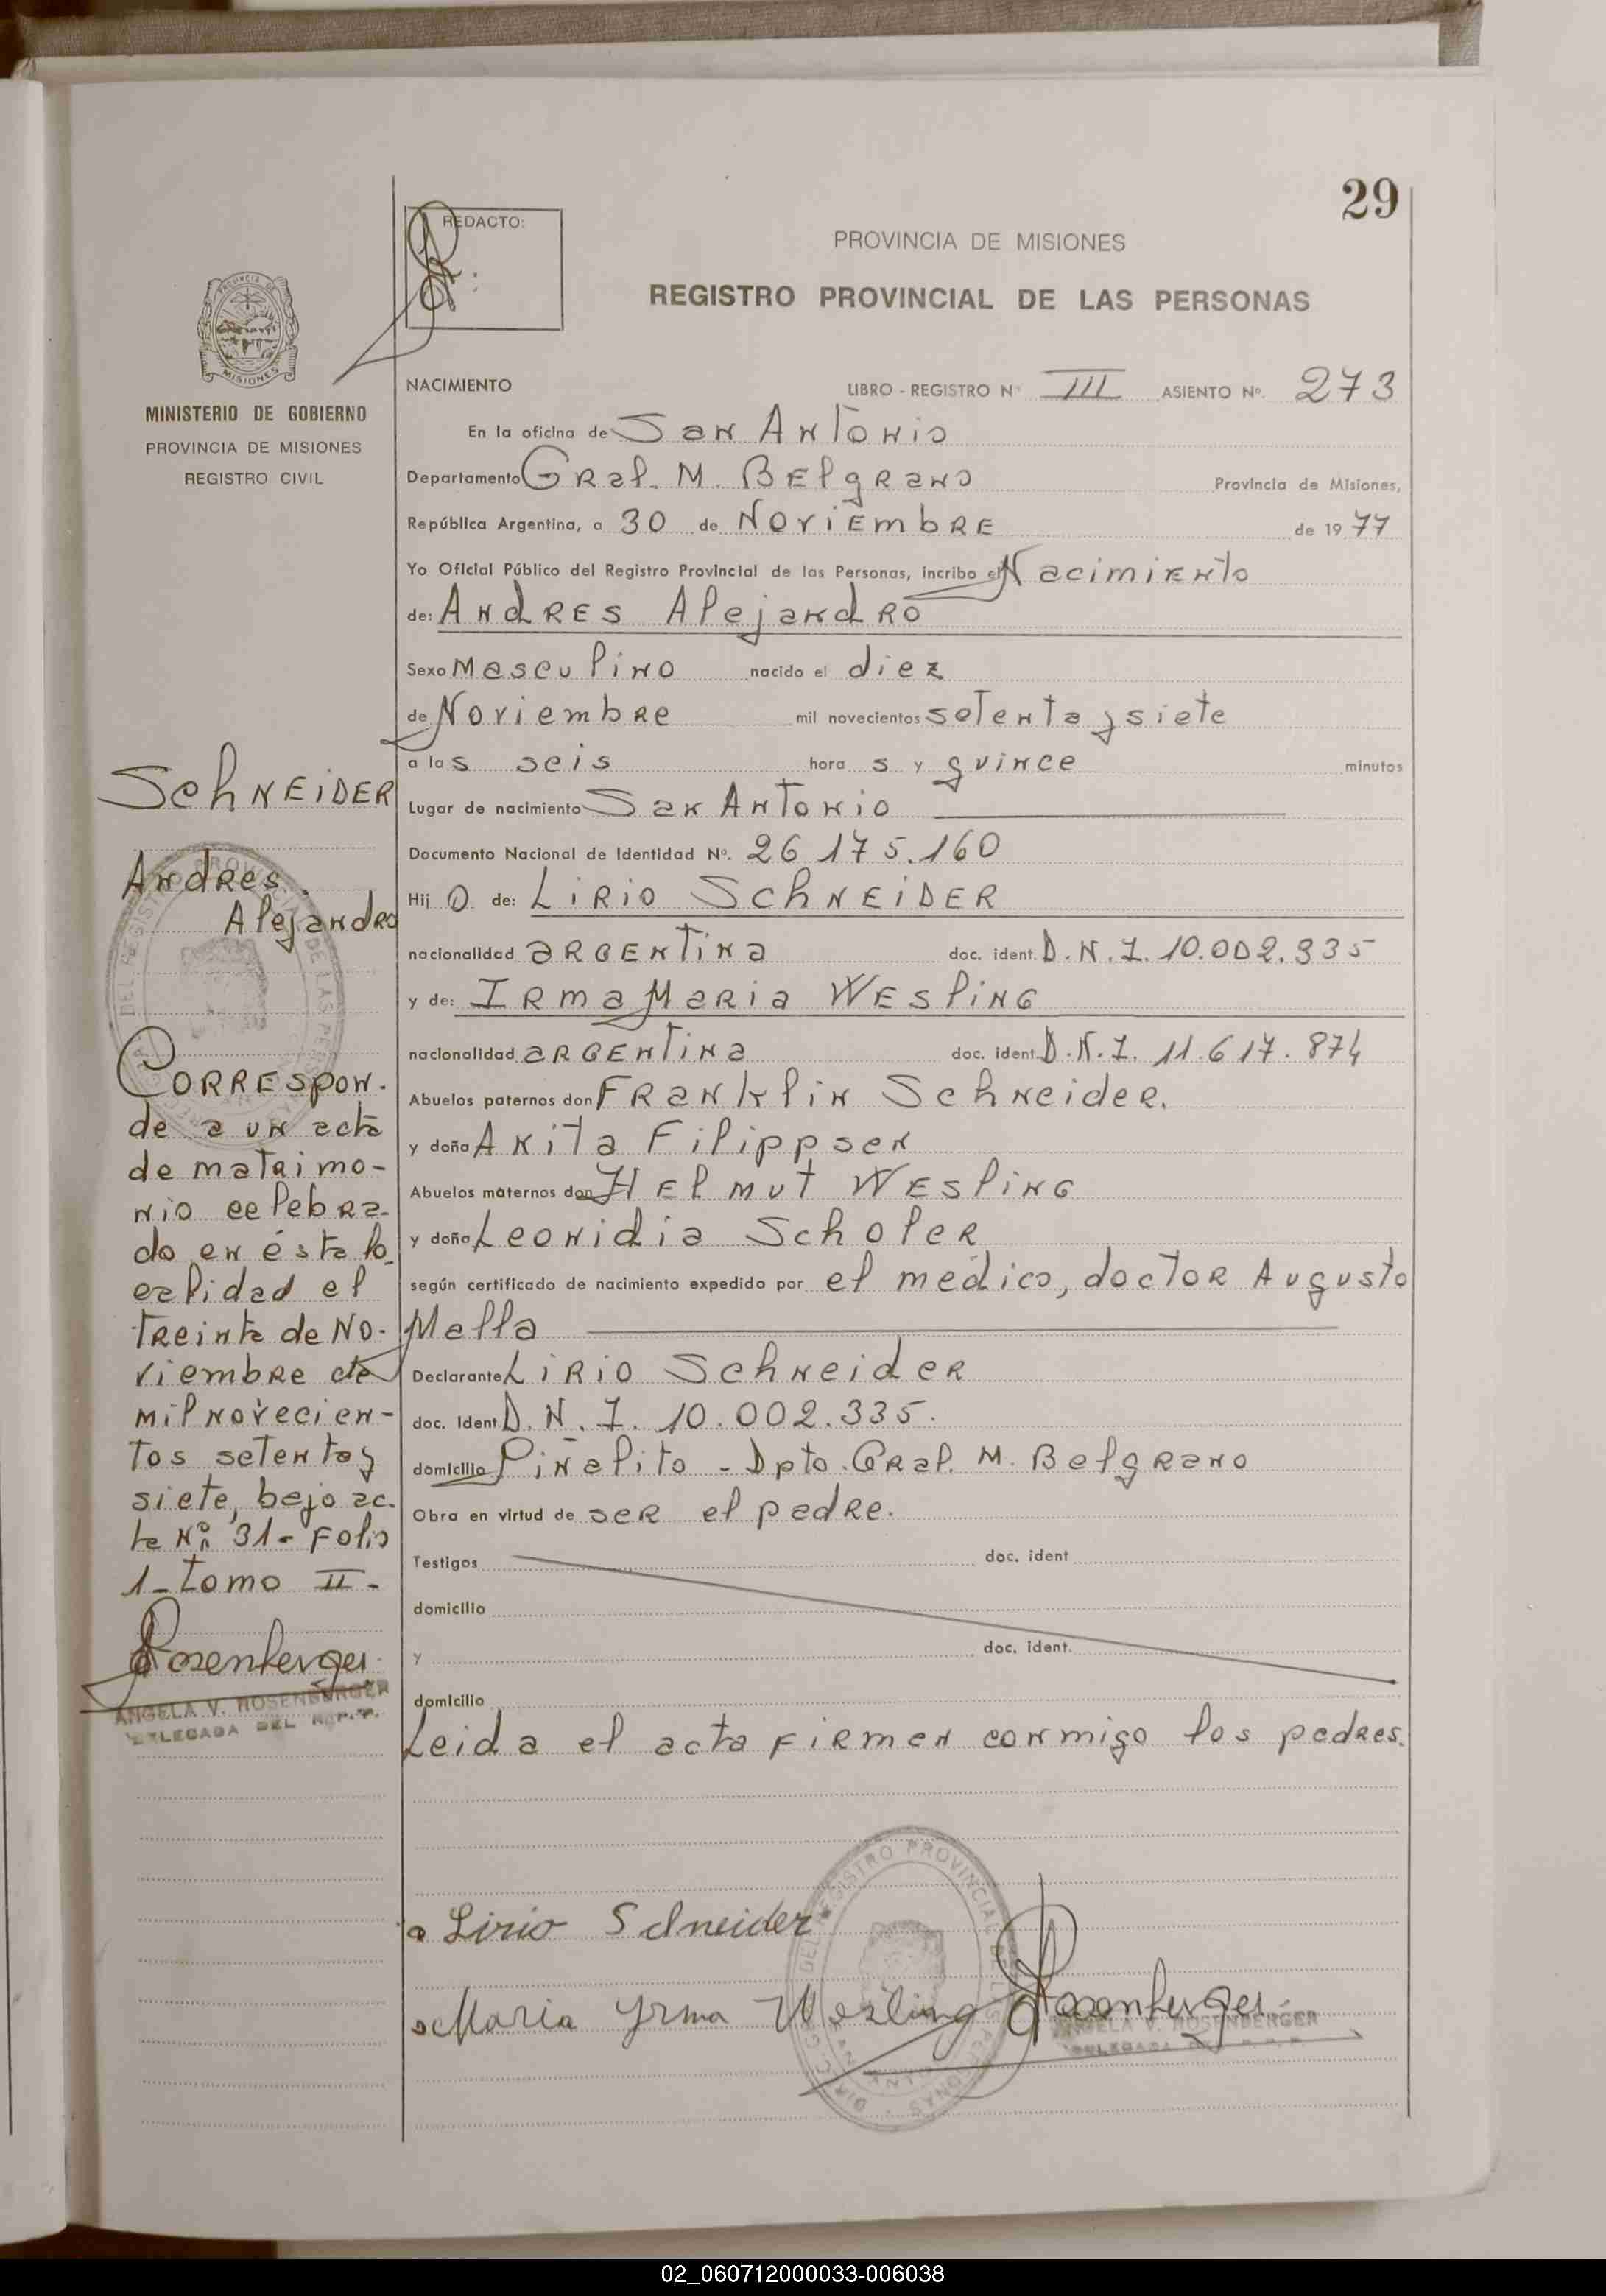 29
REDACTO:
PROVINCIA DE MISIONES
REGISTRO PROVINCIAL DE LAS PERSONAS
MISIONES
MINISTERIO DE GOBIERNO
PROVINCIA DE MISIONES
REGISTRO CIVIL
NACIMIENTO LIBRO - REGISTRO Nº III ASIENTO Nº. 273
En la oficina de San Antonio
Departamento Gral. M. Belgrano Provincia de Misiones,
República Argentina, a 30 de Noviembre de 1977
Yo Oficial Público del Registro Provincial de las Personas, incribo el Nacimiento
de: Andres Alejandro
Sexo Masculino nacido el diez
de Noviembre mil novecientos setenta y siete
a las seis hora s y quince minutos
Lugar de nacimiento San Antonio
Documento Nacional de Identidad Nº. 26 175.160
Hij o de: Lirio Schneider
nacionalidad argentina doc. ident. D.N.I. 10.002.335
y de: Irma Maria Wesling
nacionalidad argentina doc. ident. D.N.I. 11.617.874
Abuelos paternos don Franklin Schneider.
y doña Anita Filippsen
Abuelos maternos don Helmut Wesling
y doña Leonidia Scholer
según certificado de nacimiento expedido por el médico, doctor Augusto
Mella
Declarante Lirio Schneider
doc. Ident. D.N.I. 10.002.335.
domicilio Piñalito - Dpto. Gral. M. Belgrano
Obra en virtud de ser el padre.
Testigos doc. ident
domicilio
y doc. ident.
domicilio
Leida el acta firman conmigo los padres.
Lirio Schneider
Maria Yrma Wesling Rosenberger
ANGELA V. ROSENBERGER
DELEGADA DEL R.P.P.
Schneider
Andres
Alejandro
Correspon-
de a un acta
de matrimo-
nio celebra-
do en ésta lo-
calidad el
treinta de No-
viembre de
mil novecien-
tos setenta y
siete, bajo ac-
ta Nº 31- Folio
1- Tomo II-
Rosenberger
ANGELA V. ROSENBERGER
DELEGADA DEL R.P.P.
02_060712000033-006038